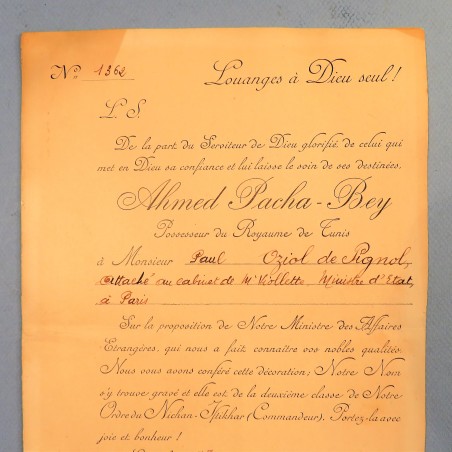 Nº 1362
Louanges à Dieu seul!
L. S.
De la part du Serviteur de Dieu glorifié, de celui qui
met en Dieu sa confiance et lui laisse le soin de ses destinées,
Ahmed Pacha-Bey
Possesseur du Royaume de Tunis
à Monsieur Paul Oziol de Pignol,
attaché au cabinet de Mr Viollette, Ministre d'Etat,
à Paris
Sur la proposition de Notre Ministre des Affaires
Etrangères, qui nous a fait connaître vos nobles qualités,
Nous vous avons conféré cette décoration; Notre Nom
s'y trouve gravé et elle est de la deuxième classe de Notre
Ordre du Nichan-Iftikhar (Commandeur). Portez-la avec
joie et bonheur!